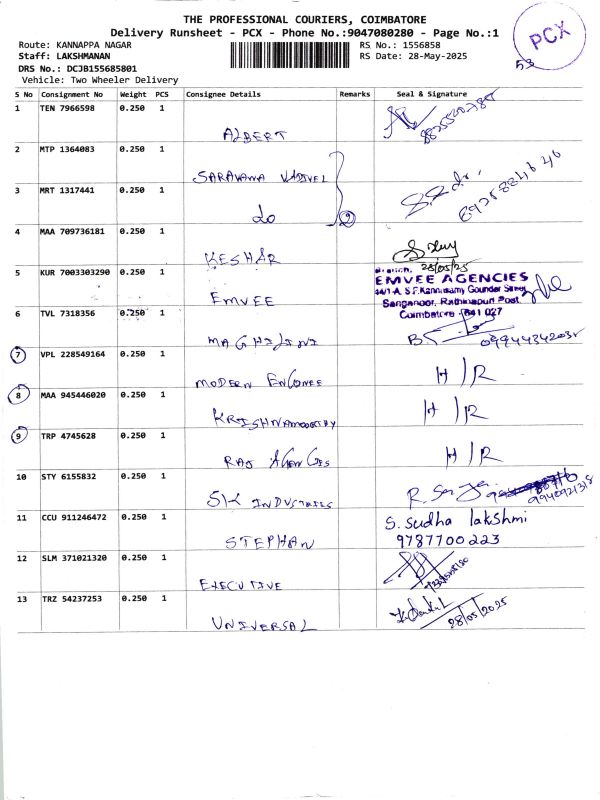 THE PROFESSIONAL COURIERS, COIMBATORE
Delivery Runsheet - PCX - Phone No.:9047080280 - Page No.:1
PCX
53
Route: KANNAPPA NAGAR
RS No.: 1556858
Staff: LAKSHMANAN
RS Date: 28-May-2025
DRS No.: DCJB155685801
Vehicle: Two Wheeler Delivery
S No Consignment No Weight PCS Consignee Details Remarks Seal & Signature
1 TEN 7966598 0.250 1
ALBERT
2 MTP 1364083 0.250 1
SARAVANA VADIVEL
3 MRT 1317441 0.250 1
do
2
4 MAA 709736181 0.250 1
KESHAR
28/05/25
5 KUR 7003303290 0.250 1
EMVEE
EMVEE AGENCIES
44/1-A, S.F.Kannusamy Gounder Street
Sanganoor, Rathinapuri Post
Coimbatore - 641 027
6 TVL 7318356 0.250 1
MAGHILINI
09944342032
7 VPL 228549164 0.250 1
MODERN
H/R
8 MAA 945446020 0.250 1
KRISHNAMOORTHY
H/R
9 TRP 4745628 0.250 1
RAJ AGENCIES
H/R
10 STY 6155832 0.250 1
SK INDUSTRIES
11 CCU 911246472 0.250 1
STEPHAN
S. Sudha lakshmi
9787700223
12 SLM 371021320 0.250 1
EXECUTIVE
13 TRZ 54237253 0.250 1
UNIVERSAL
28/05/2025